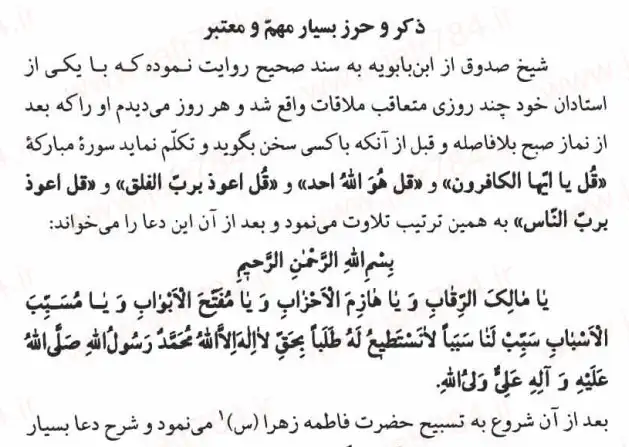 ذکر و حرز بسیار مهمّ و معتبر
شیخ صدوق از ابن‌بابویه به سند صحیح روایت نموده که با یکی از
استادان خود چند روزی متعاقب ملاقات واقع شد و هر روز می‌دیدم او را که بعد
از نماز صبح بلافاصله و قبل از آنکه با کسی سخن بگوید و تکلّم نماید سورهٔ مبارکهٔ
«قُل یا ایّها الکافرون» و «قل هُوَ اللهُ احد» و «قُل اعوذ بربّ الفلق» و «قل اعوذ
بربّ النّاس» به همین ترتیب تلاوت می‌نمود و بعد از آن این دعا را می‌خواند:
بِسْمِ اللهِ الرَّحْمٰنِ الرَّحیمِ
یٰا مٰالِکَ الرِّقٰابِ وَ یٰا هٰازِمَ الْاَحْزٰابِ وَ یٰا مُفَتِّحَ الْاَبْوٰابِ وَ یٰا مُسَبِّبَ
الْاَسْبٰابِ سَبِّبْ لَنٰا سَبَباً لاٰنَسْتَطیعُ لَهُ طَلَباً بِحَقِّ لاٰاِلٰهَ اِلاَّ اللهُ مُحَمَّدٌ رَسُولُ اللهِ صَلَّی اللهُ
عَلَیْهِ وَ آلِهِ عَلِیٌّ وَلِیُّ اللهِ.
بعد از آن شروع به تسبیح حضرت فاطمه زهرا (س)۱ می‌نمود و شرح دعا بسیار